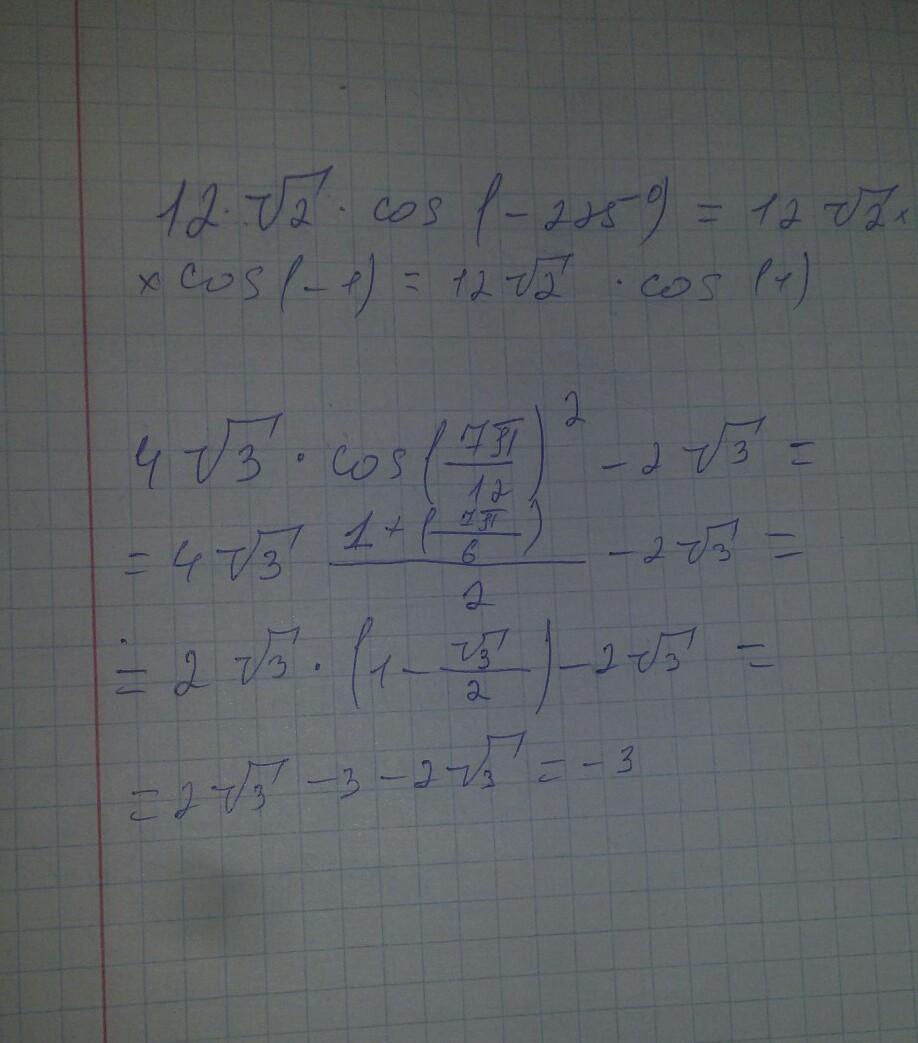 12·√2 · cos (-225°) = 12√2 ×
× cos(-1) = 12√2 · cos (1)
4√3 · cos(7π/12)² - 2√3 =
= 4√3 (1+(7π/6))/2 - 2√3 =
= 2√3 · (1 - √3/2) - 2√3 =
= 2√3 - 3 - 2√3 = -3